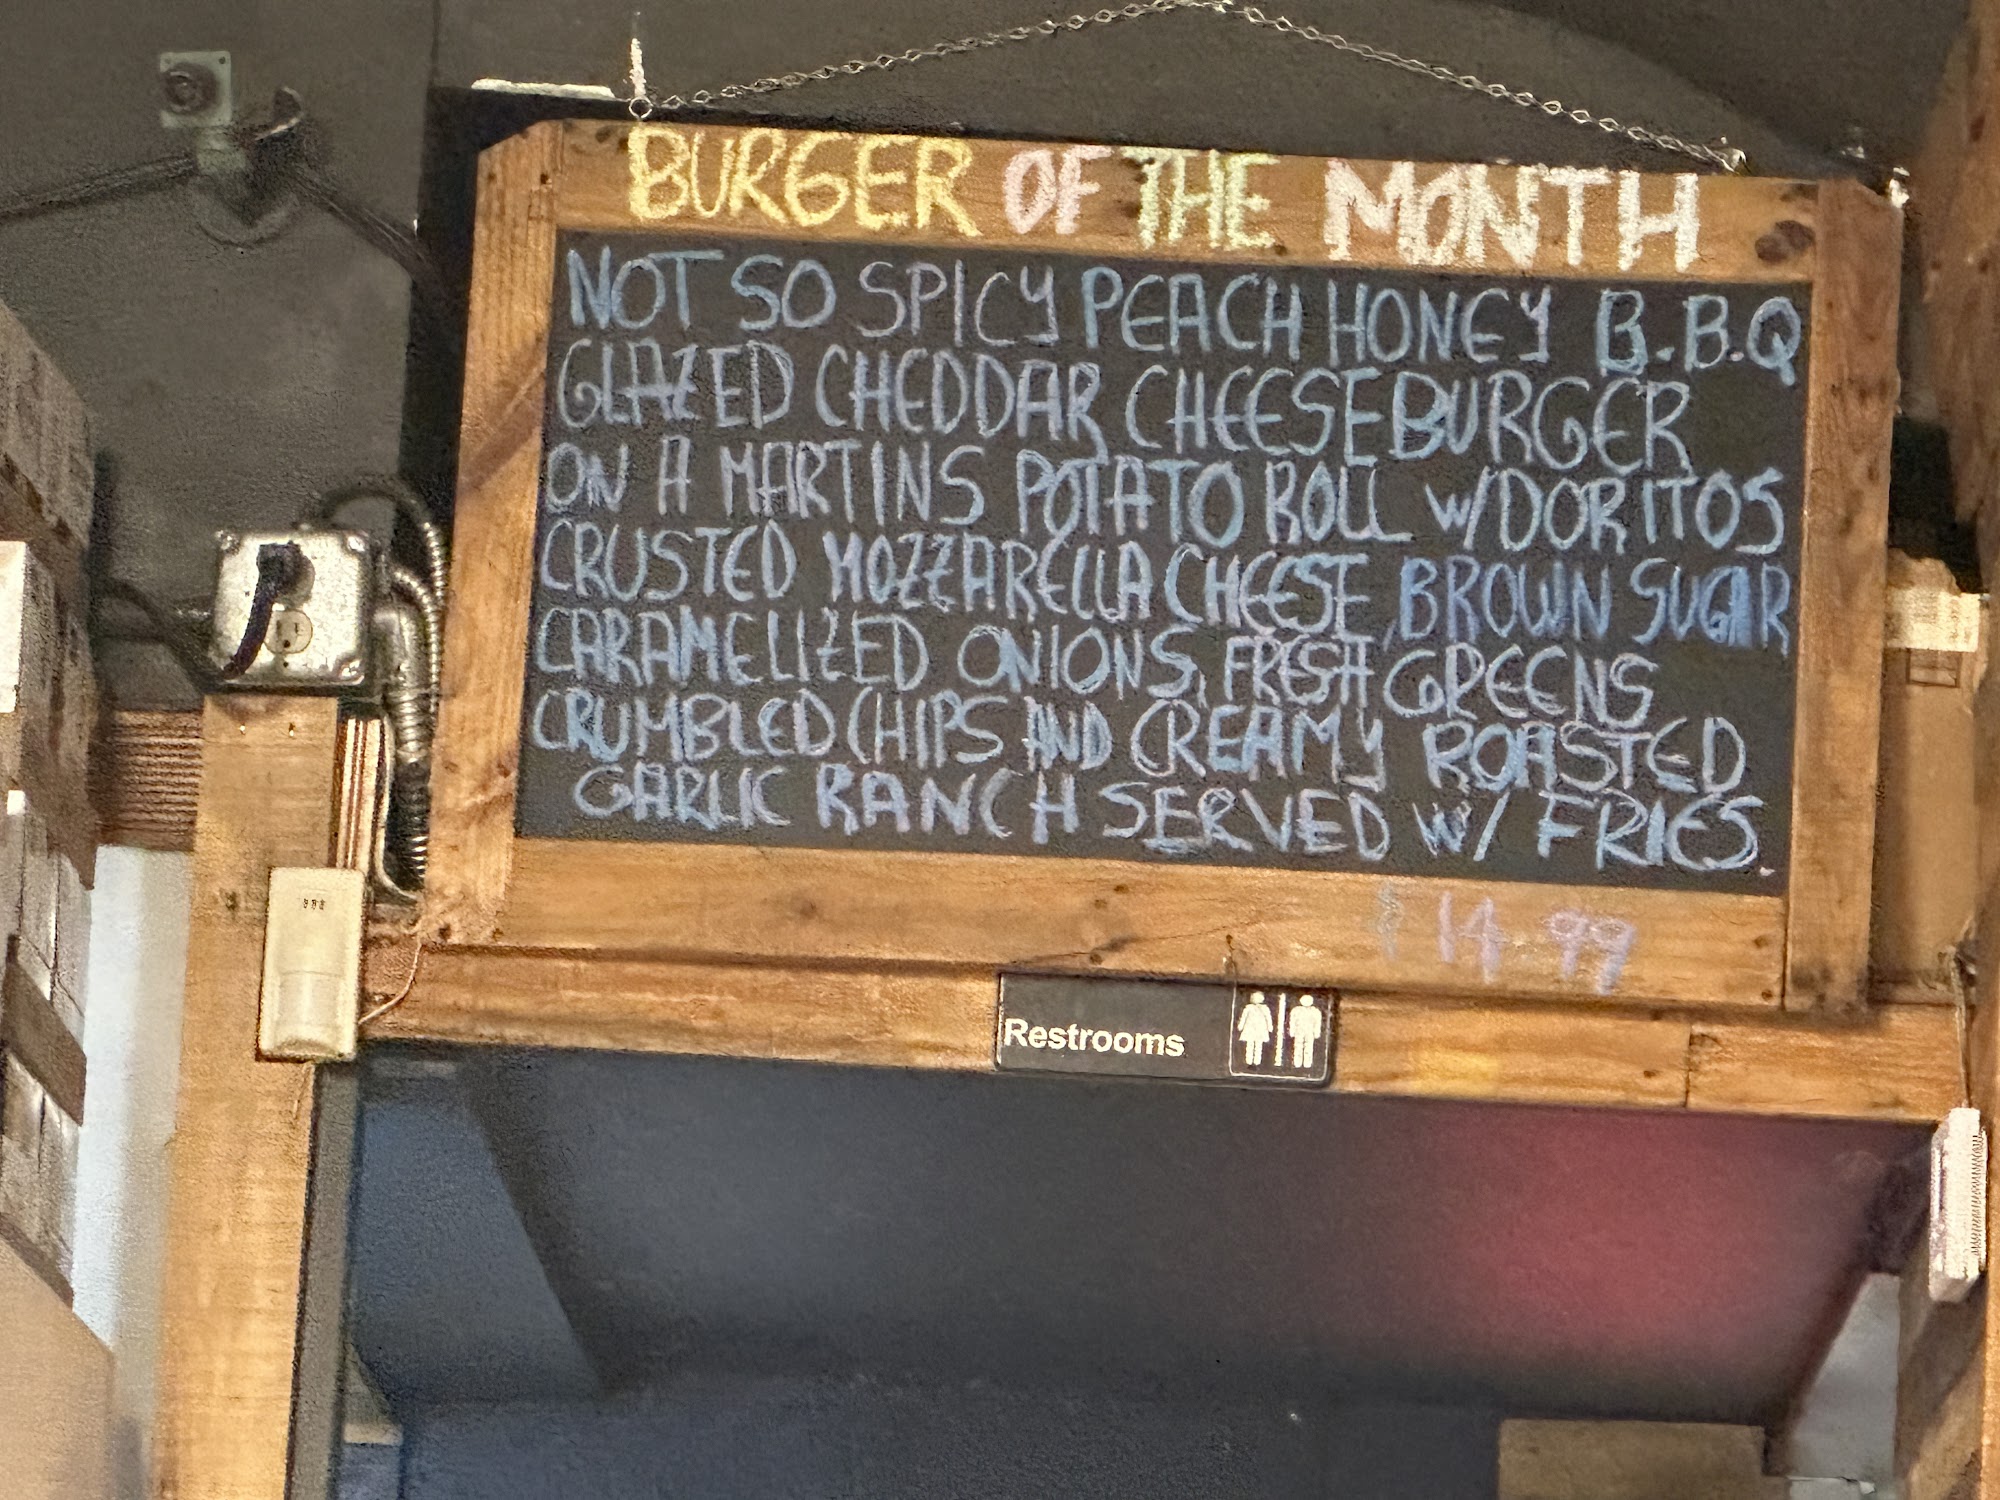 BURGER OF THE MONTH
NOT SO SPICY PEACH HONEY B.B.Q
GLAZED CHEDDAR CHEESEBURGER
ON A MARTINS POTATO ROLL w/DORITOS
CRUSTED MOZZARELLA CHEESE, BROWN SUGAR
CARAMELIZED ONIONS, FRESH GREENS
CRUMBLED CHIPS AND CREAMY ROASTED
GARLIC RANCH SERVED W/ FRIES.
$14.99
Restrooms